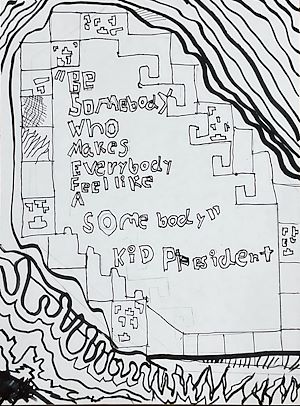 "Be
Somebody
Who
Makes
Everybody
Feel like
A
SOmebody"
KiD President